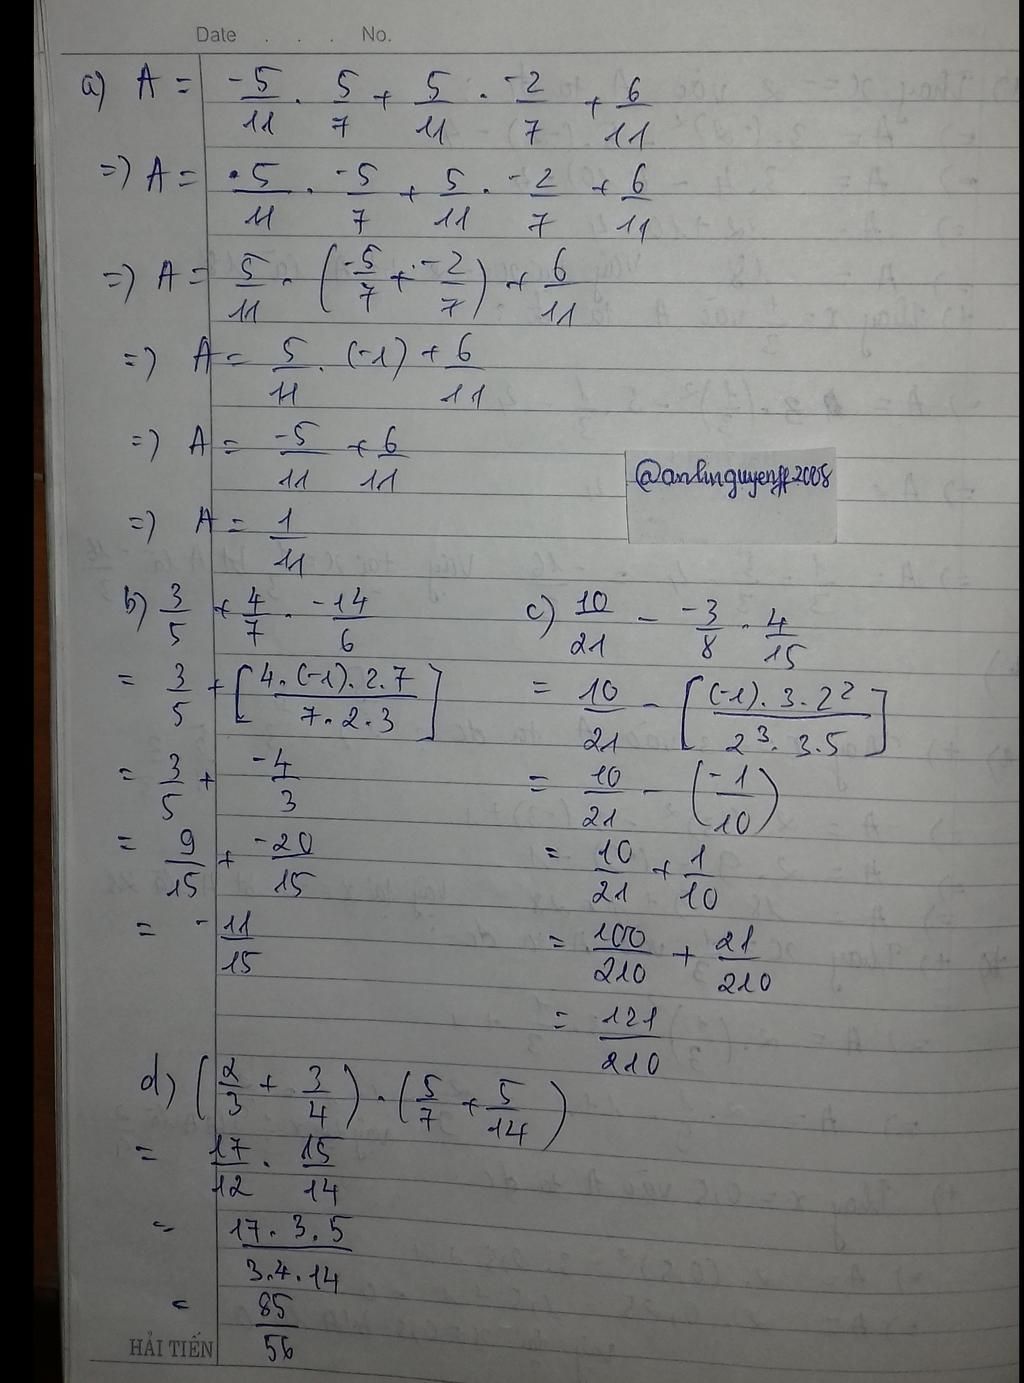 Date . . . No.
a) A = -5/11 . 5/7 + 5/11 . -2/7 + 6/11
=) A = 5/11 . -5/7 + 5/11 . -2/7 + 6/11
=) A = 5/11 . (-5/7 + -2/7) + 6/11
=) A = 5/11 . (-1) + 6/11
=) A = -5/11 + 6/11
=) A = 1/11
b) 3/5 + 4/7 . -14/6
= 3/5 + [4.(-1).2.7 / 7.2.3]
= 3/5 + -4/3
= 9/15 + -20/15
= -11/15
c) 10/21 - -3/8 . 4/15
= 10/21 - [(-1).3.2² / 2³.3.5]
= 10/21 - (-1/10)
= 10/21 + 1/10
= 100/210 + 21/210
= 121/210
d) (2/3 + 3/4) . (5/7 + 5/14)
= 17/12 . 15/14
= 17.3.5 / 3.4.14
= 85/56
HẢI TIẾN